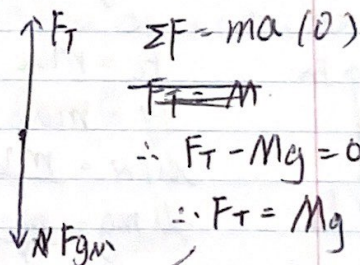 F_T
ΣF = ma (0)
F_T = M
∴ F_T - Mg = 0
∴ F_T = Mg
F_gM